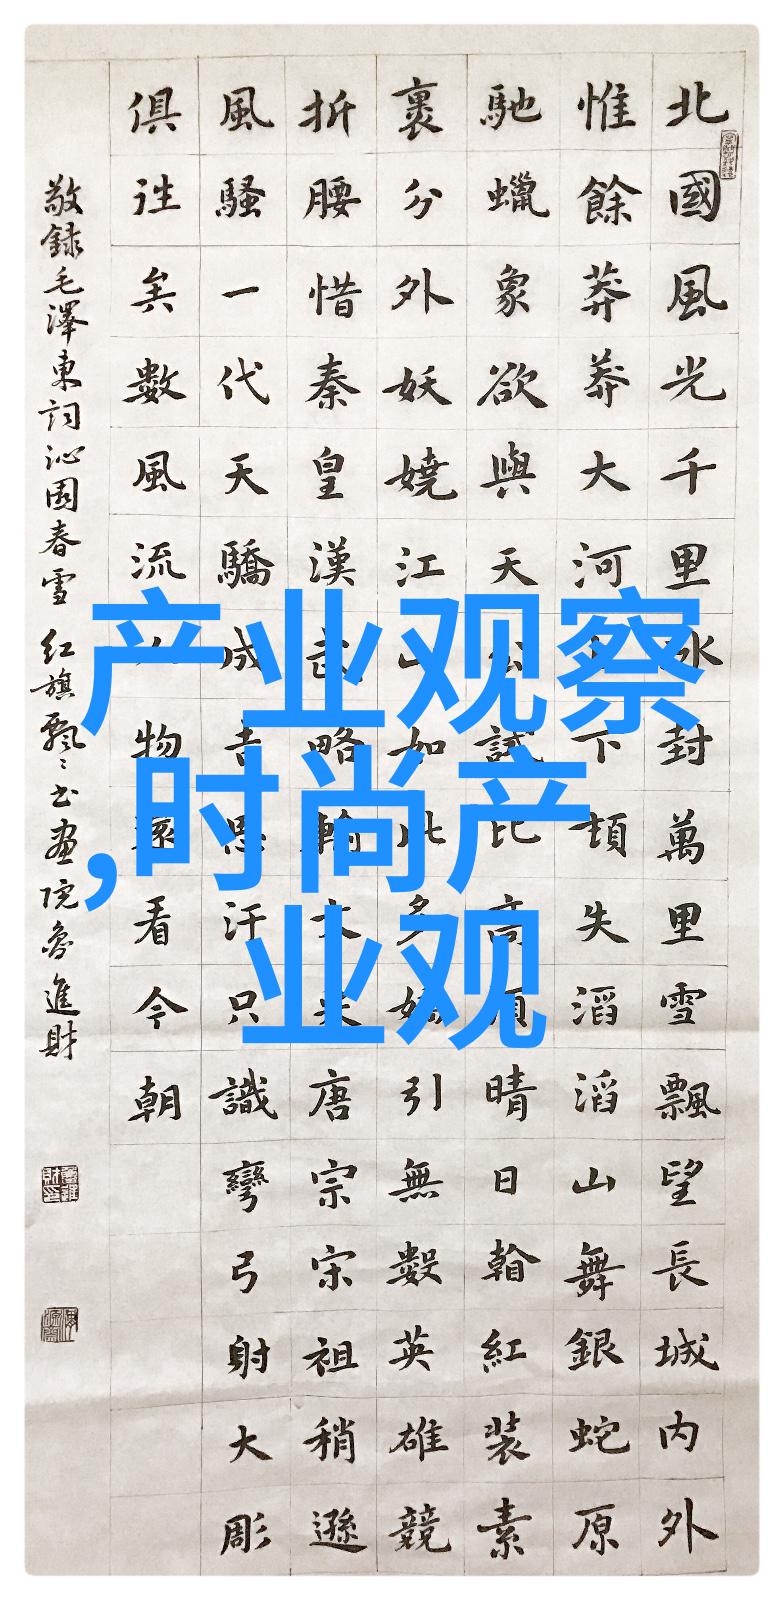 北國風光千里冰封萬里雪飄望長城内外
惟餘莽莽大河上下頓失滔滔山舞銀蛇原
馳蠟象欲與天公試比高須晴日看紅裝素
裹分外妖嬈江山如此多嬌引無數英雄競
折腰惜秦皇漢武略輸文采唐宗宋祖稍遜
風騷一代天驕成吉思汗只識彎弓射大彫
俱往矣數風流人物還看今朝
敬録毛澤東詞沁園春雪 红旗飄〻书畫院魯進財
产业观察
,时尚产
业观